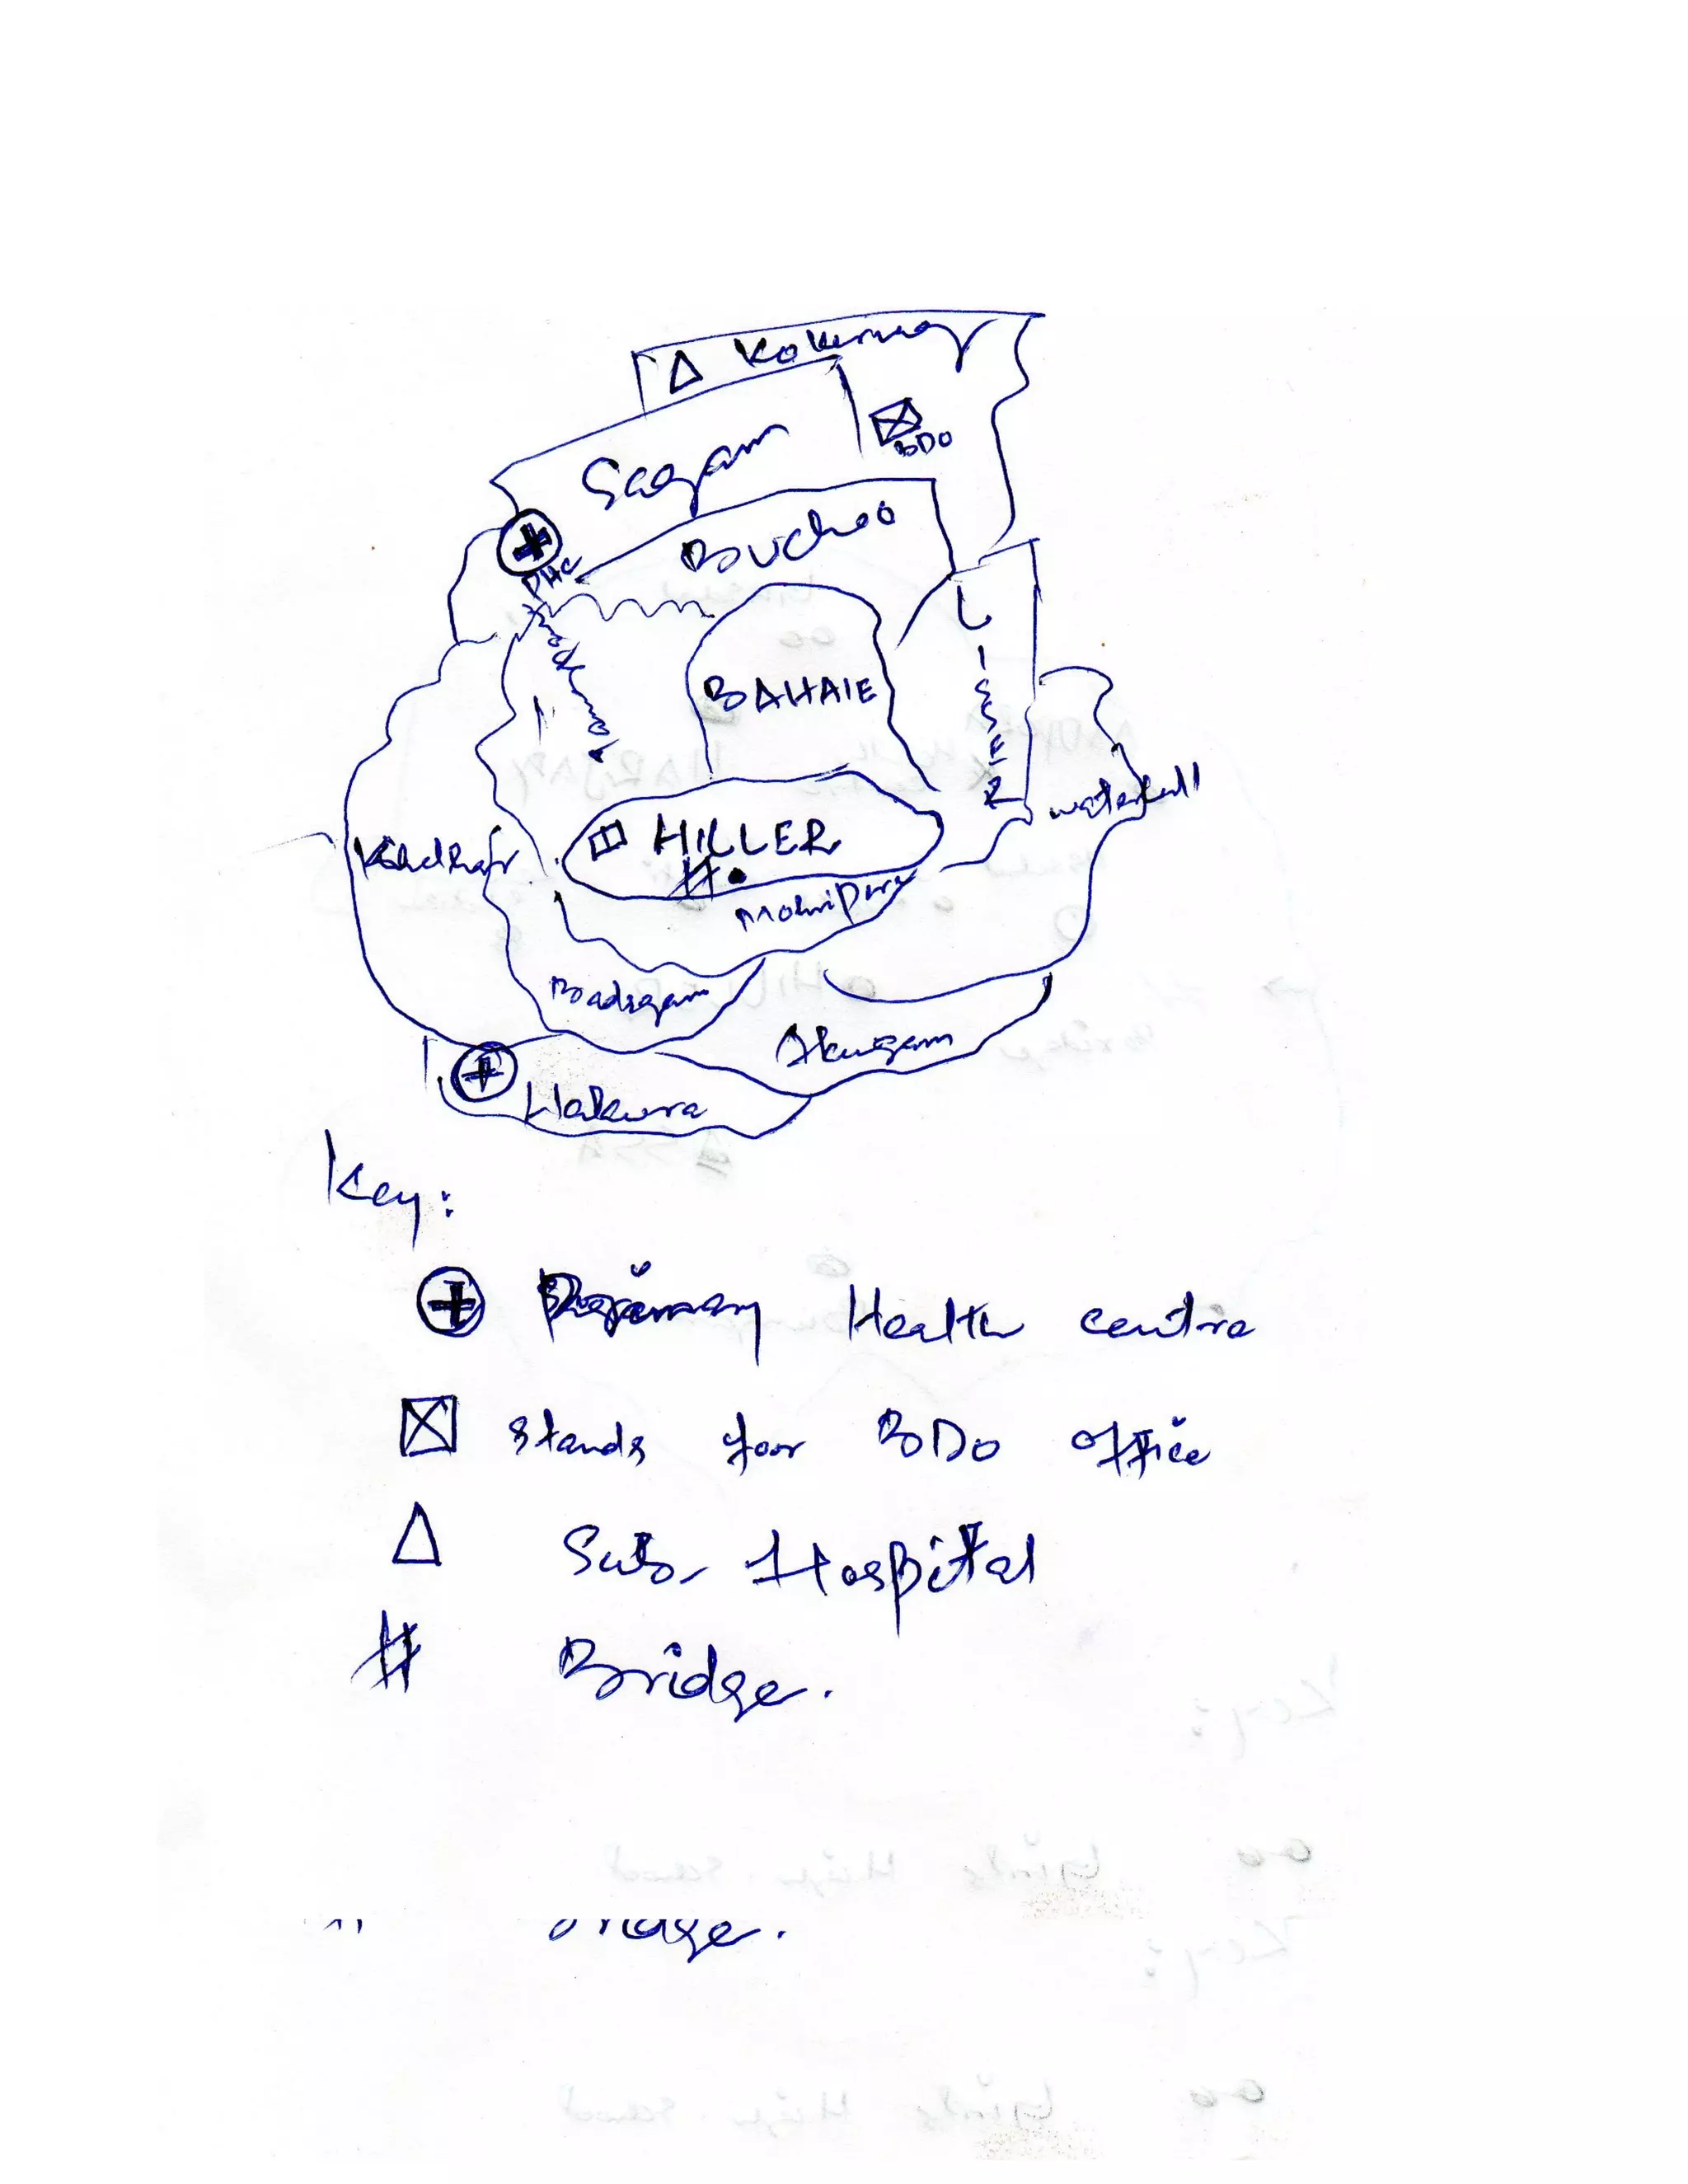 Kokernag
BDO
Sagam
Buchoo
PHC
BAHAIE
LISSER
waterfall
HILLER
#
Mohripura
Badigam
Akugam
Hakura
Key:
Primary Health centre
stands for BDO office
Sub-Hospital
# Bridge.